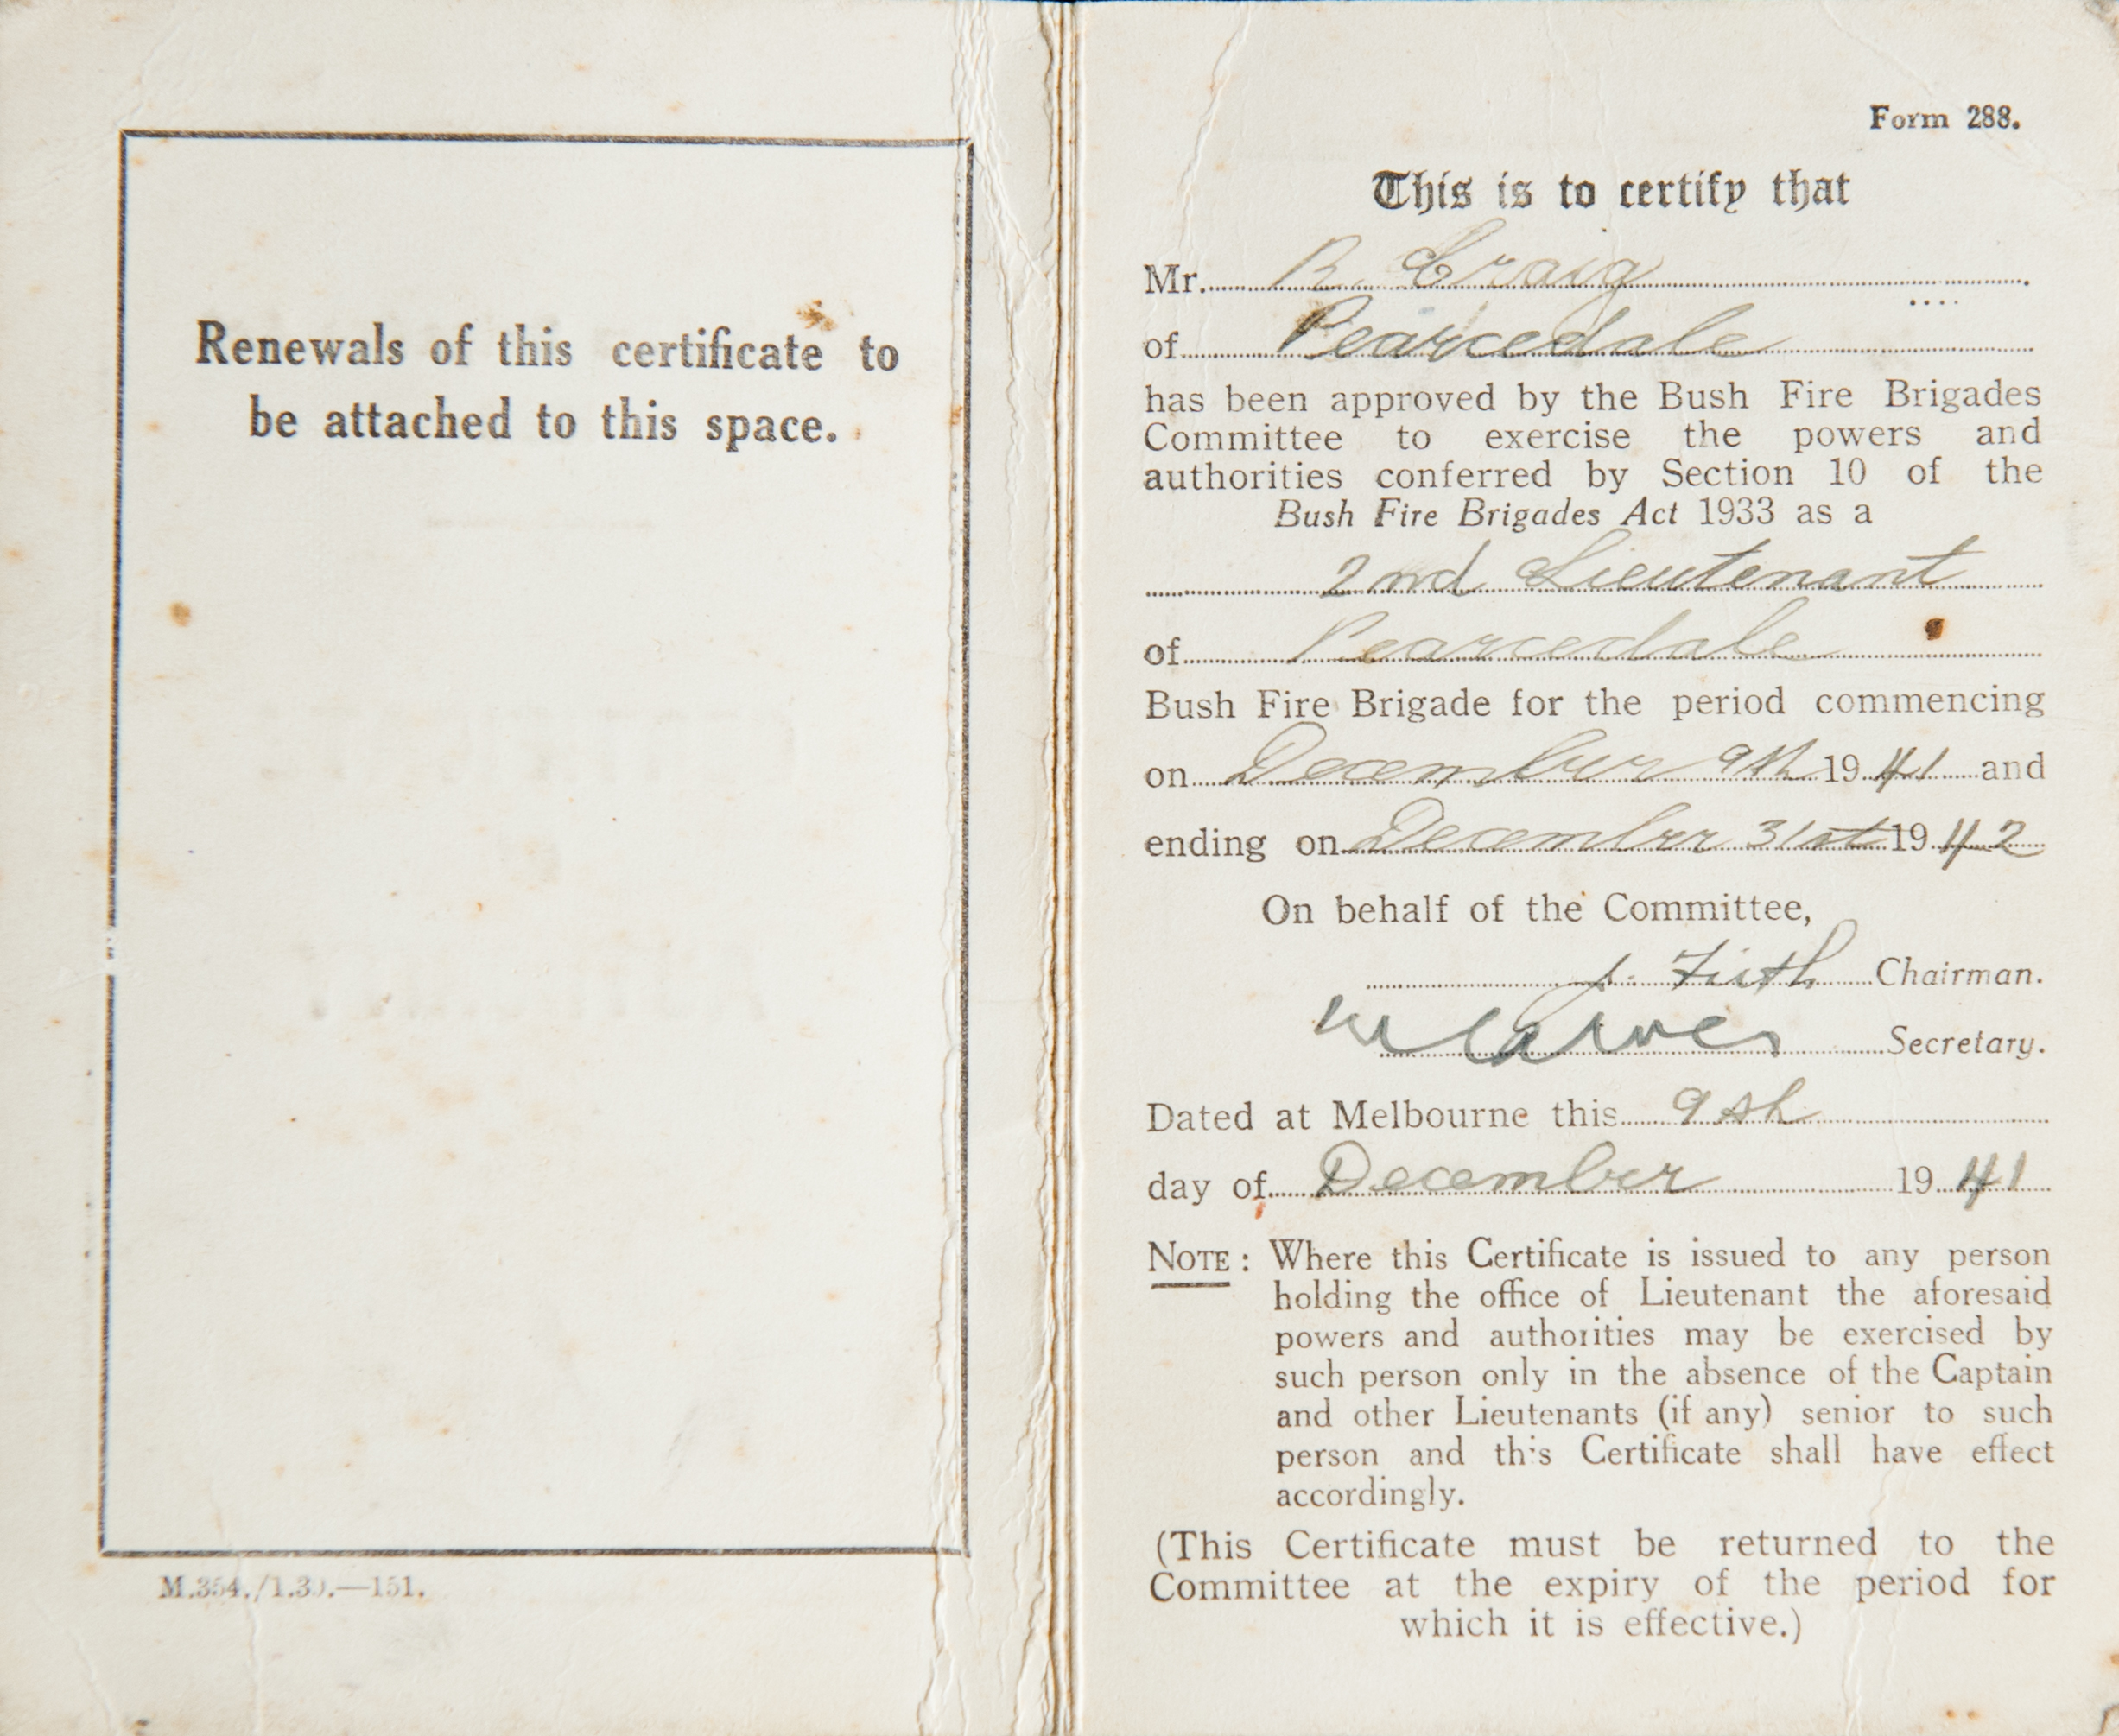 Renewals of this certificate to
be attached to this space.
Form 288.
This is to certify that
Mr. R. Craig
of Pearcedale
has been approved by the Bush Fire Brigades
Committee to exercise the powers and
authorities conferred by Section 10 of the
Bush Fire Brigades Act 1933 as a
2nd Lieutenant
of Pearcedale
Bush Fire Brigade for the period commencing
on December 9th 1941 and
ending on December 31st 1942
On behalf of the Committee,
Chairman.
Secretary.
Dated at Melbourne this 9th
day of December 1941
NOTE: Where this Certificate is issued to any person
holding the office of Lieutenant the aforesaid
powers and authorities may be exercised by
such person only in the absence of the Captain
and other Lieutenants (if any) senior to such
person and this Certificate shall have effect
accordingly.
(This Certificate must be returned to the
Committee at the expiry of the period for
which it is effective.)